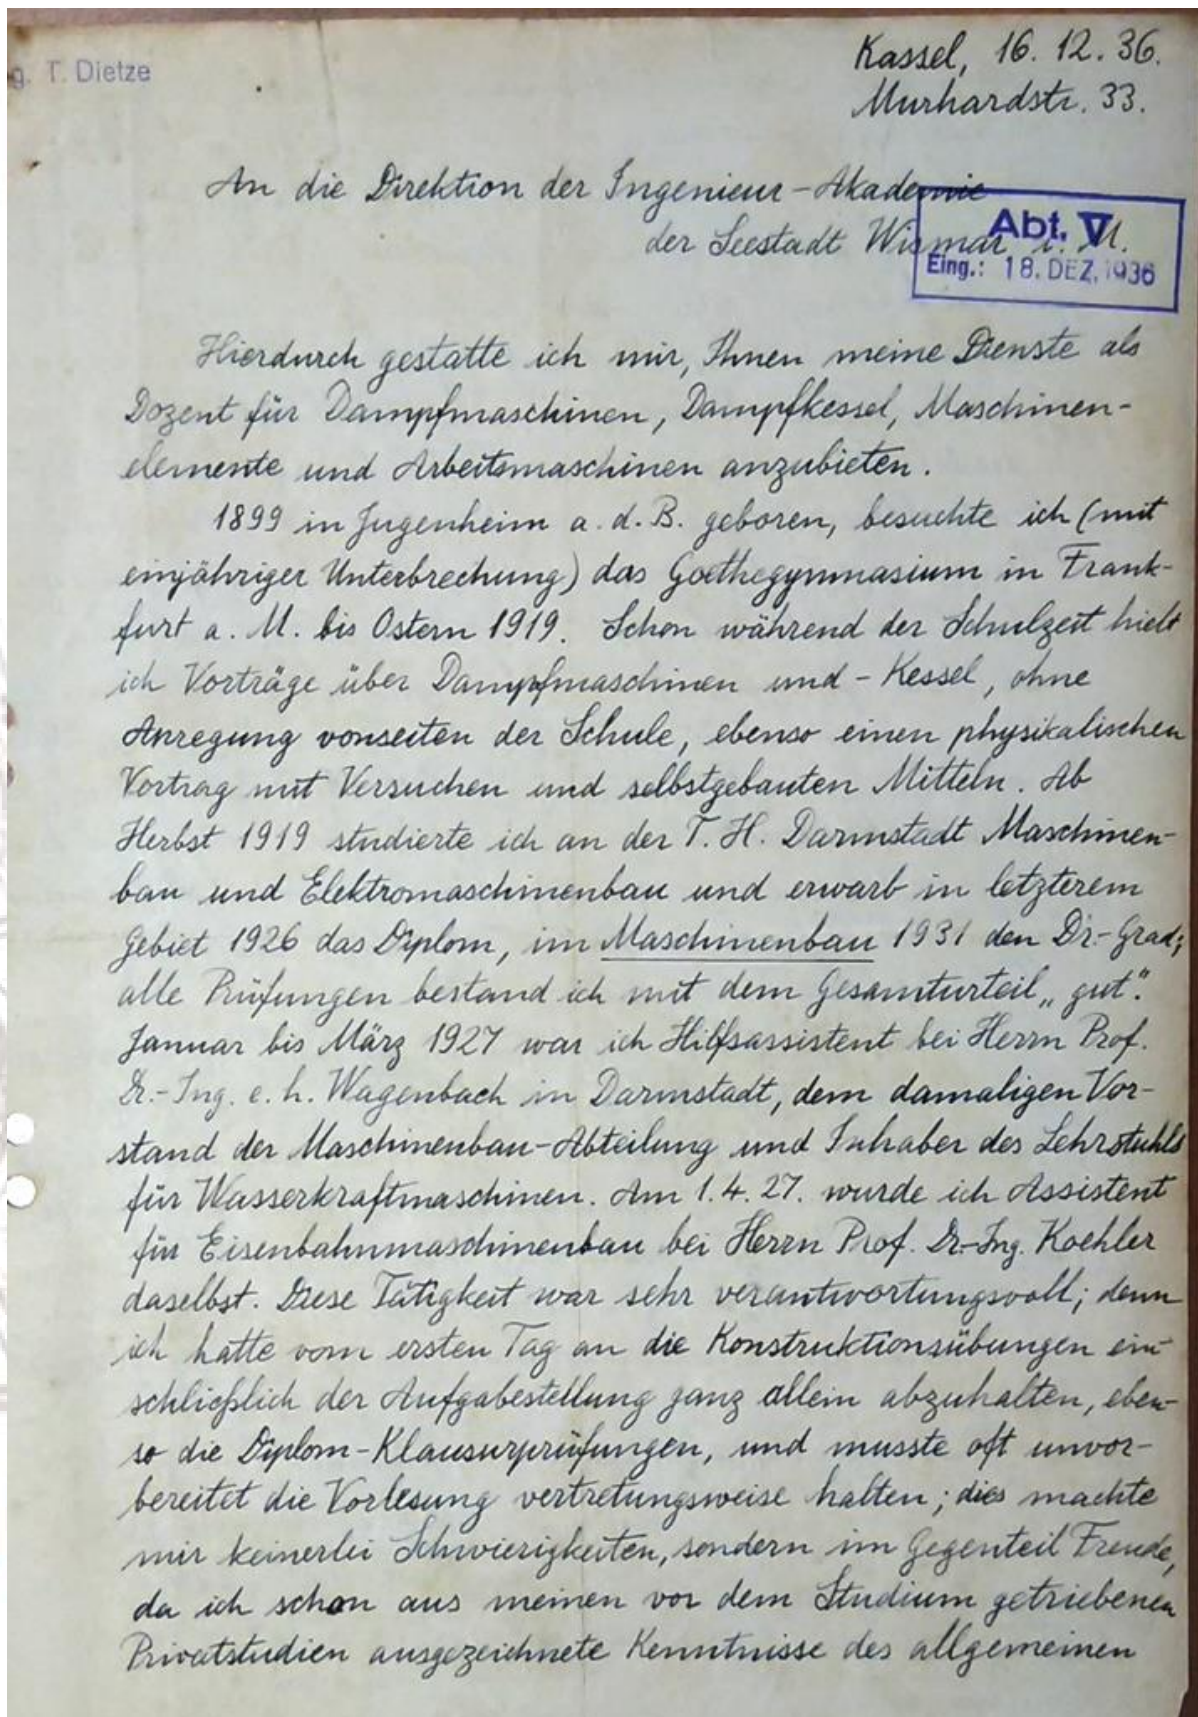 g. T. Dietze
Kassel, 16. 12. 36.
Murhardstr. 33.
An die Direktion der Ingenieur-Akademie
der Seestadt Wismar i. M.
Abt. V
Eing.: 18. DEZ. 1936
Hierdurch gestatte ich mir, Ihnen meine Dienste als
Dozent für Dampfmaschinen, Dampfkessel, Maschinen-
elemente und Arbeitsmaschinen anzubieten.
1899 in Jugenheim a. d. B. geboren, besuchte ich (mit
einjähriger Unterbrechung) das Goethegymnasium in Frank-
furt a. M. bis Ostern 1919. Schon während der Schulzeit hielt
ich Vorträge über Dampfmaschinen und -Kessel, ohne
Anregung vonseiten der Schule, ebenso einen physikalischen
Vortrag mit Versuchen und selbstgebauten Mitteln. Ab
Herbst 1919 studierte ich an der T. H. Darmstadt Maschinen-
bau und Elektromaschinenbau und erwarb in letzterem
Gebiet 1926 das Diplom, im Maschinenbau 1931 den Dr.-Grad;
alle Prüfungen bestand ich mit dem Gesamturteil „gut“.
Januar bis März 1927 war ich Hilfsassistent bei Herrn Prof.
Dr.-Ing. e. h. Wagenbach in Darmstadt, dem damaligen Vor-
stand der Maschinenbau-Abteilung und Inhaber des Lehrstuhls
für Wasserkraftmaschinen. Am 1. 4. 27. wurde ich Assistent
für Eisenbahnmaschinenbau bei Herrn Prof. Dr.-Ing. Koehler
daselbst. Diese Tätigkeit war sehr verantwortungsvoll; denn
ich hatte vom ersten Tag an die Konstruktionsübungen ein-
schließlich der Aufgabestellung ganz allein abzuhalten, eben-
so die Diplom-Klausurprüfungen, und musste oft unvor-
bereitet die Vorlesung vertretungsweise halten; dies machte
mir keinerlei Schwierigkeiten, sondern im Gegenteil Freude,
da ich schon aus meinen vor dem Studium getriebenen
Privatstudien ausgezeichnete Kenntnisse des allgemeinen